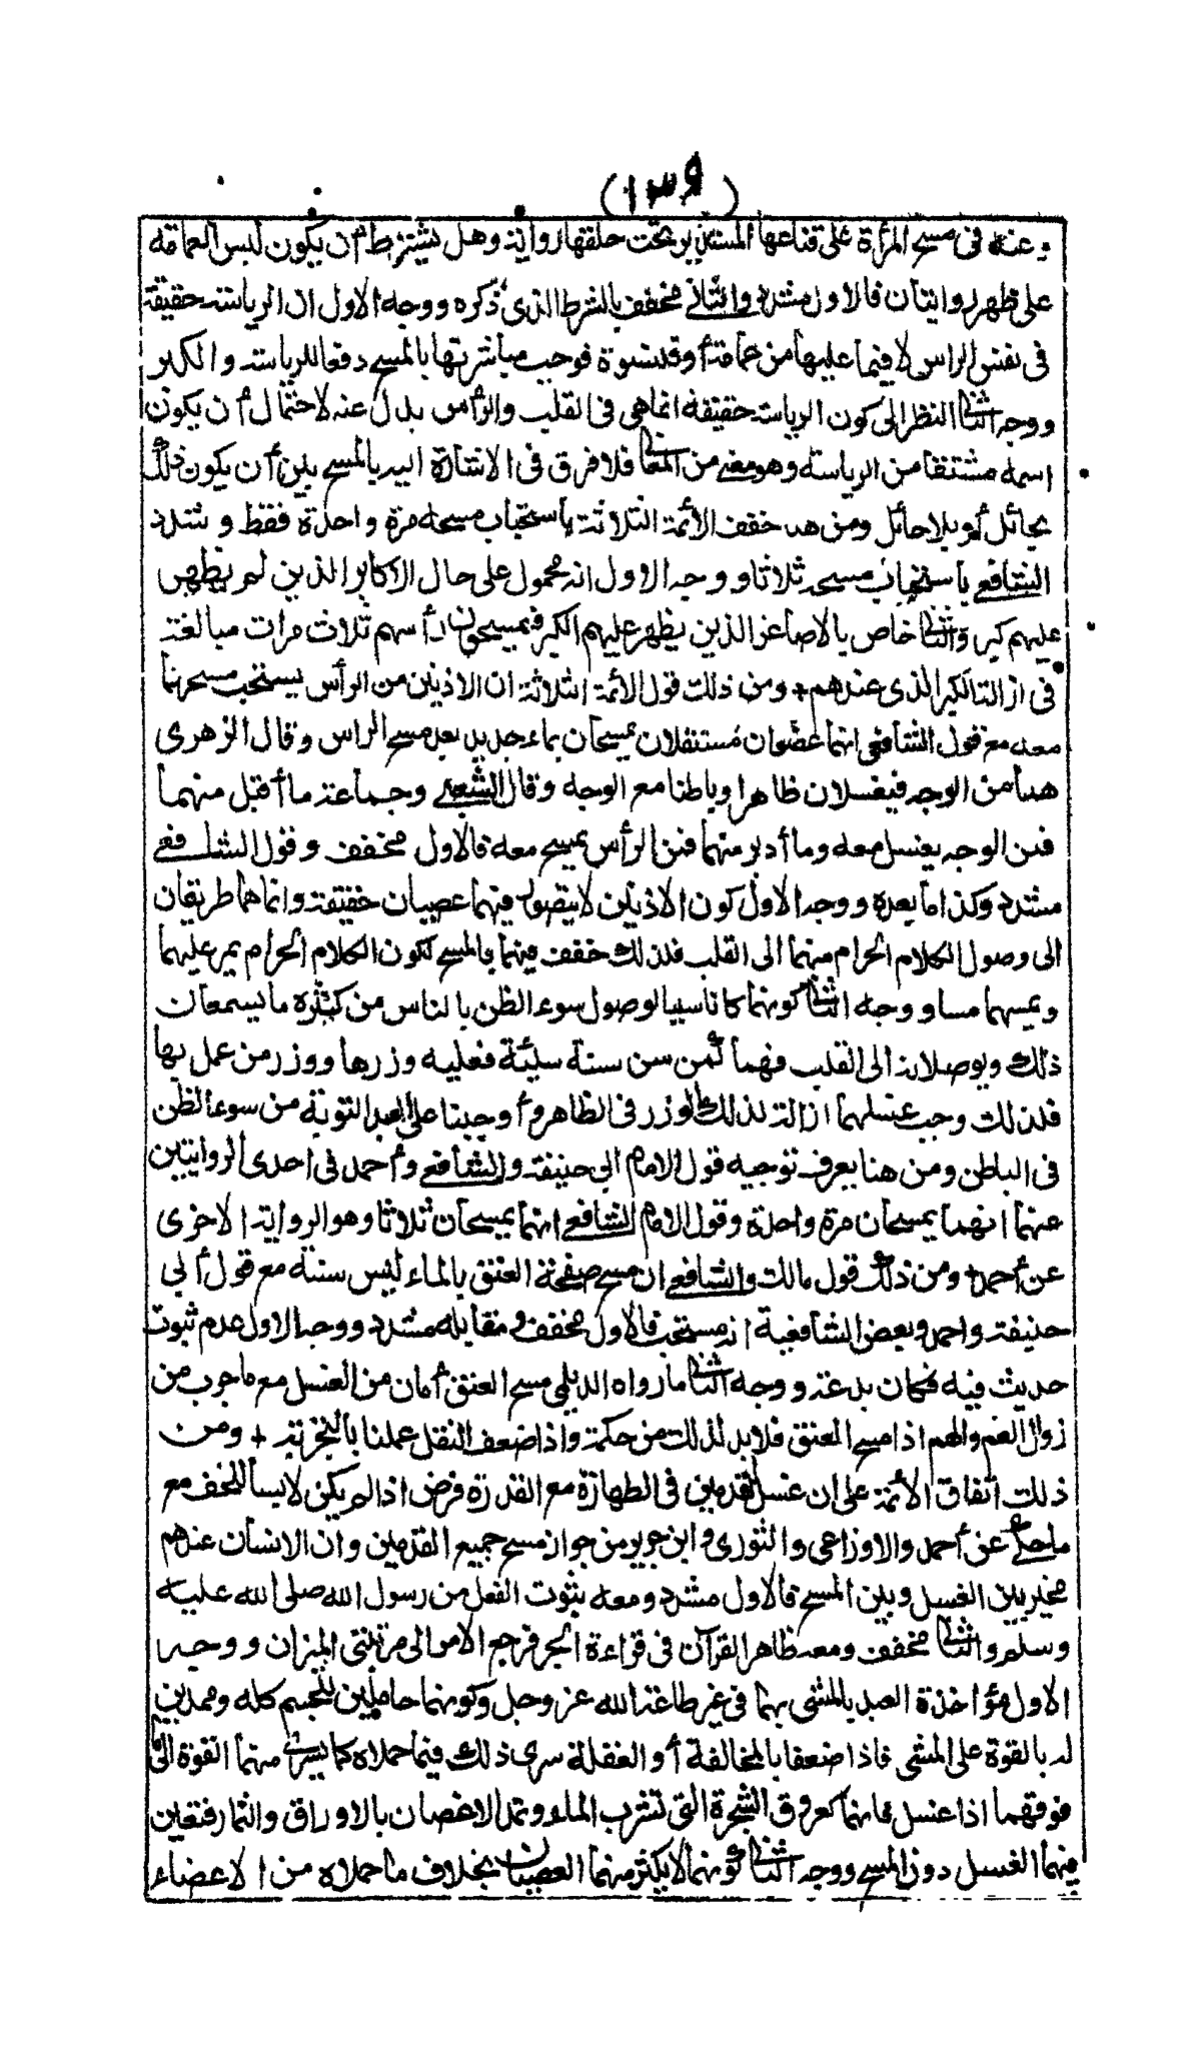 (١٣٩)
وعنه فى مسح المرأة على قناعها المستدير تحت حلقها رواية وهل يشترط أن يكون لبس العمامة
على طهر روايتان فالاول مشدد والثانى مخفف بالشرط الذى ذكره ووجه الاول ان الرياسة حقيقة
فى نفس الراس لا فيما عليها من عمامة أو قلنسوة فوجب مباشرتها بالمسح دفعا للرياسة والكبر
ووجه الثانى النظر الى كون الرياسة حقيقة انما هى فى القلب والرأس بدل عنه لاحتمال أن يكون
اسمه مشتقا من الرياسة وهو معنى من المعانى فلا فرق فى الاشارة اليه بالمسح بين أن يكون ذلك
بحائل أو بلا حائل ومن هذا خفف الأئمة الثلاثة باستحباب مسحه مرة واحدة فقط وشدد
الشافعى باستحباب مسحه ثلاثا ووجه الاول انه محمول على حال الاكابر الذين لم يظهر
عليهم كبر والثانى خاص بالاصاغر الذين يظهر عليهم الكبر فيمسحون رأسهم ثلاث مرات مبالغة
فى ازالة الكبر الذى عندهم + ومن ذلك قول الأئمة الثلاثة ان الاذنين من الرأس يستحب مسحهما
معه مع قول الشافعى انهما عضوان مستقلان يمسحان بماء جديد بعد مسح الراس وقال الزهرى
هما من الوجه فيغسلان ظاهرا وباطنا مع الوجه وقال الشعبى وجماعة ما أقبل منهما
فمن الوجه يغسل معه وما أدبر منهما فمن الرأس يمسح معه فالاول مخفف وقول الشافعى
مشدد وكذا ما بعده ووجه الاول كون الاذنين لا يتصور فيهما عصيان حقيقة وانما هما طريقان
الى وصول الكلام الحرام منهما الى القلب فلذلك خفف فيهما بالمسح لكون الكلام الحرام يمر عليهما
ويمسهما مسا ووجه الثانى كونهما كانا سببا لوصول سوء الظن بالناس من كثرة ما يسمعان
ذلك ويوصلانه الى القلب فهما كمن سن سنة سيئة فعليه وزرها ووزر من عمل بها
فلذلك وجب غسلهما ازالة لذلك الوزر فى الظاهر وأوجبنا على العبد التوبة من سوء الظن
فى الباطن ومن هنا يعرف توجيه قول الامام ابى حنيفة والشافعى وأحمد فى احدى الروايتين
عنهما انهما يمسحان مرة واحدة وقول الامام الشافعى انهما يمسحان ثلاثا وهو الرواية الاخرى
عن أحمد + ومن ذلك قول مالك والشافعى ان مسح صفحة العنق بالماء ليس سنة مع قول أبى
حنيفة واحمد وبعض الشافعية انه مستحب فالاول مخفف ومقابله مشدد ووجه الاول عدم ثبوت
حديث فيه فكان بدعة ووجه الثانى ما رواه الديلمى مسح العنق أمان من الغسل مع ما جرب من
زوال الغم والهم اذا مسح العنق فلا بد لذلك من حكمة واذا ضعف النقل عملنا بالتجربة + ومن
ذلك اتفاق الأئمة على ان غسل القدمين فى الطهارة مع القدرة فرض اذا لم يكن لابسا للخف مع
ما حكى عن أحمد والاوزاعى والثورى وابن جرير من جواز مسح جميع القدمين وان الانسان عندهم
مخير بين الغسل وبين المسح فالاول مشدد ومعه ثبوت الفعل من رسول الله صلى الله عليه
وسلم والثانى مخفف ومعه ظاهر القرآن فى قراءة الجر فرجع الامر الى مرتبتى الميزان ووجه
الاول مؤاخذة العبد بالمشى بهما فى غير طاعة الله عز وجل وكونهما حاملين للجسم كله وممدين
له بالقوة على المشى فاذا ضعفا بالمخالفة أو الغفلة سرى ذلك فيما حملاه كما يسرى منهما القوة الى
فوقهما اذا غسل فانهما كعروق الشجرة التى تشرب الماء وتمد الاغصان بالاوراق والثمار فتعين
فيهما الغسل دون المسح ووجه الثانى كونهما لا يكثر منهما العصيان بخلاف ما حملاه من الاعضاء